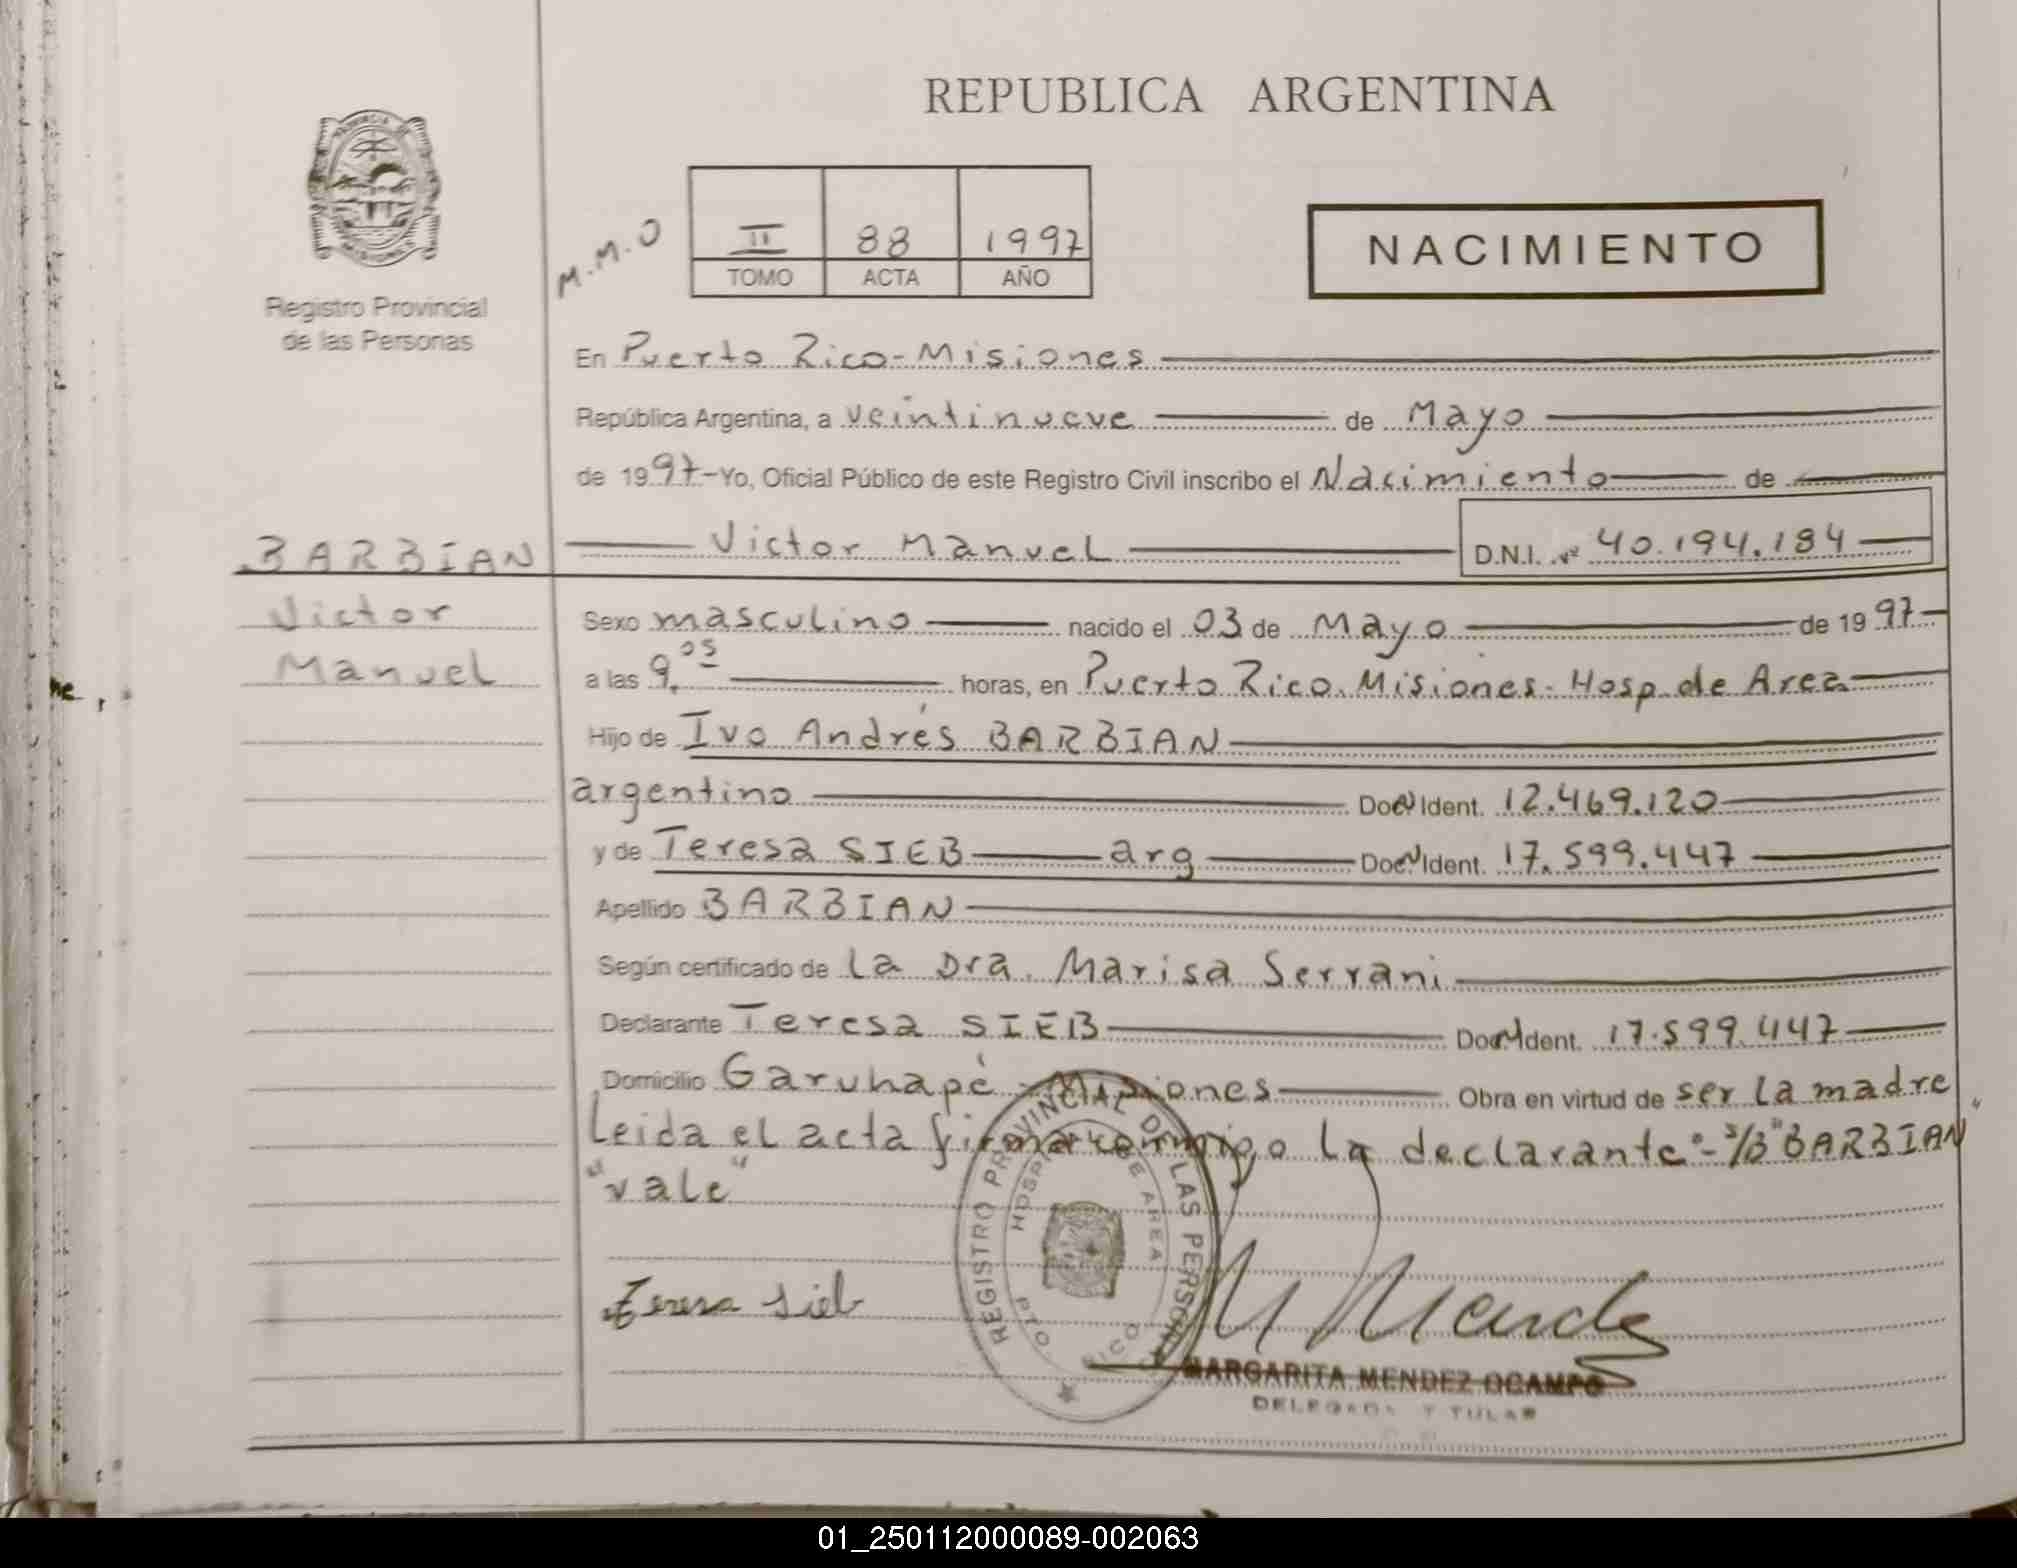 REPUBLICA ARGENTINA
PROVINCIA DE MISIONES
Registro Provincial
de las Personas
M.M.O
II 88 1997
TOMO ACTA AÑO
NACIMIENTO
En Puerto Rico - Misiones
República Argentina, a veintinueve de Mayo
de 1997 - Yo, Oficial Público de este Registro Civil inscribo el Nacimiento de
BARBIAN
Victor
Manuel
Victor Manuel D.N.I. Nº 40.194.184
Sexo masculino nacido el 03 de Mayo de 1997
a las 9.05 horas, en Puerto Rico. Misiones. Hosp. de Area
Hijo de Ivo Andrés BARBIAN
argentino Doc. Ident. 12.469.120
y de Teresa SIEB arg Doc. Ident. 17.599.447
Apellido BARBIAN
Según certificado de la Dra. Marisa Serrani
Declarante Teresa SIEB Doc. Ident. 17.599.447
Domicilio Garuhapé - Misiones Obra en virtud de ser la madre
Leida el acta firma conmigo la declarante - S/B "BARBIAN"
"vale"
REGISTRO PROVINCIAL DE LAS PERSONAS
HOSPITAL DE AREA
PTO. RICO
Teresa Sieb
M Mendez
MARGARITA MENDEZ OCAMPO
DELEGADA TITULAR
01_250112000089-002063